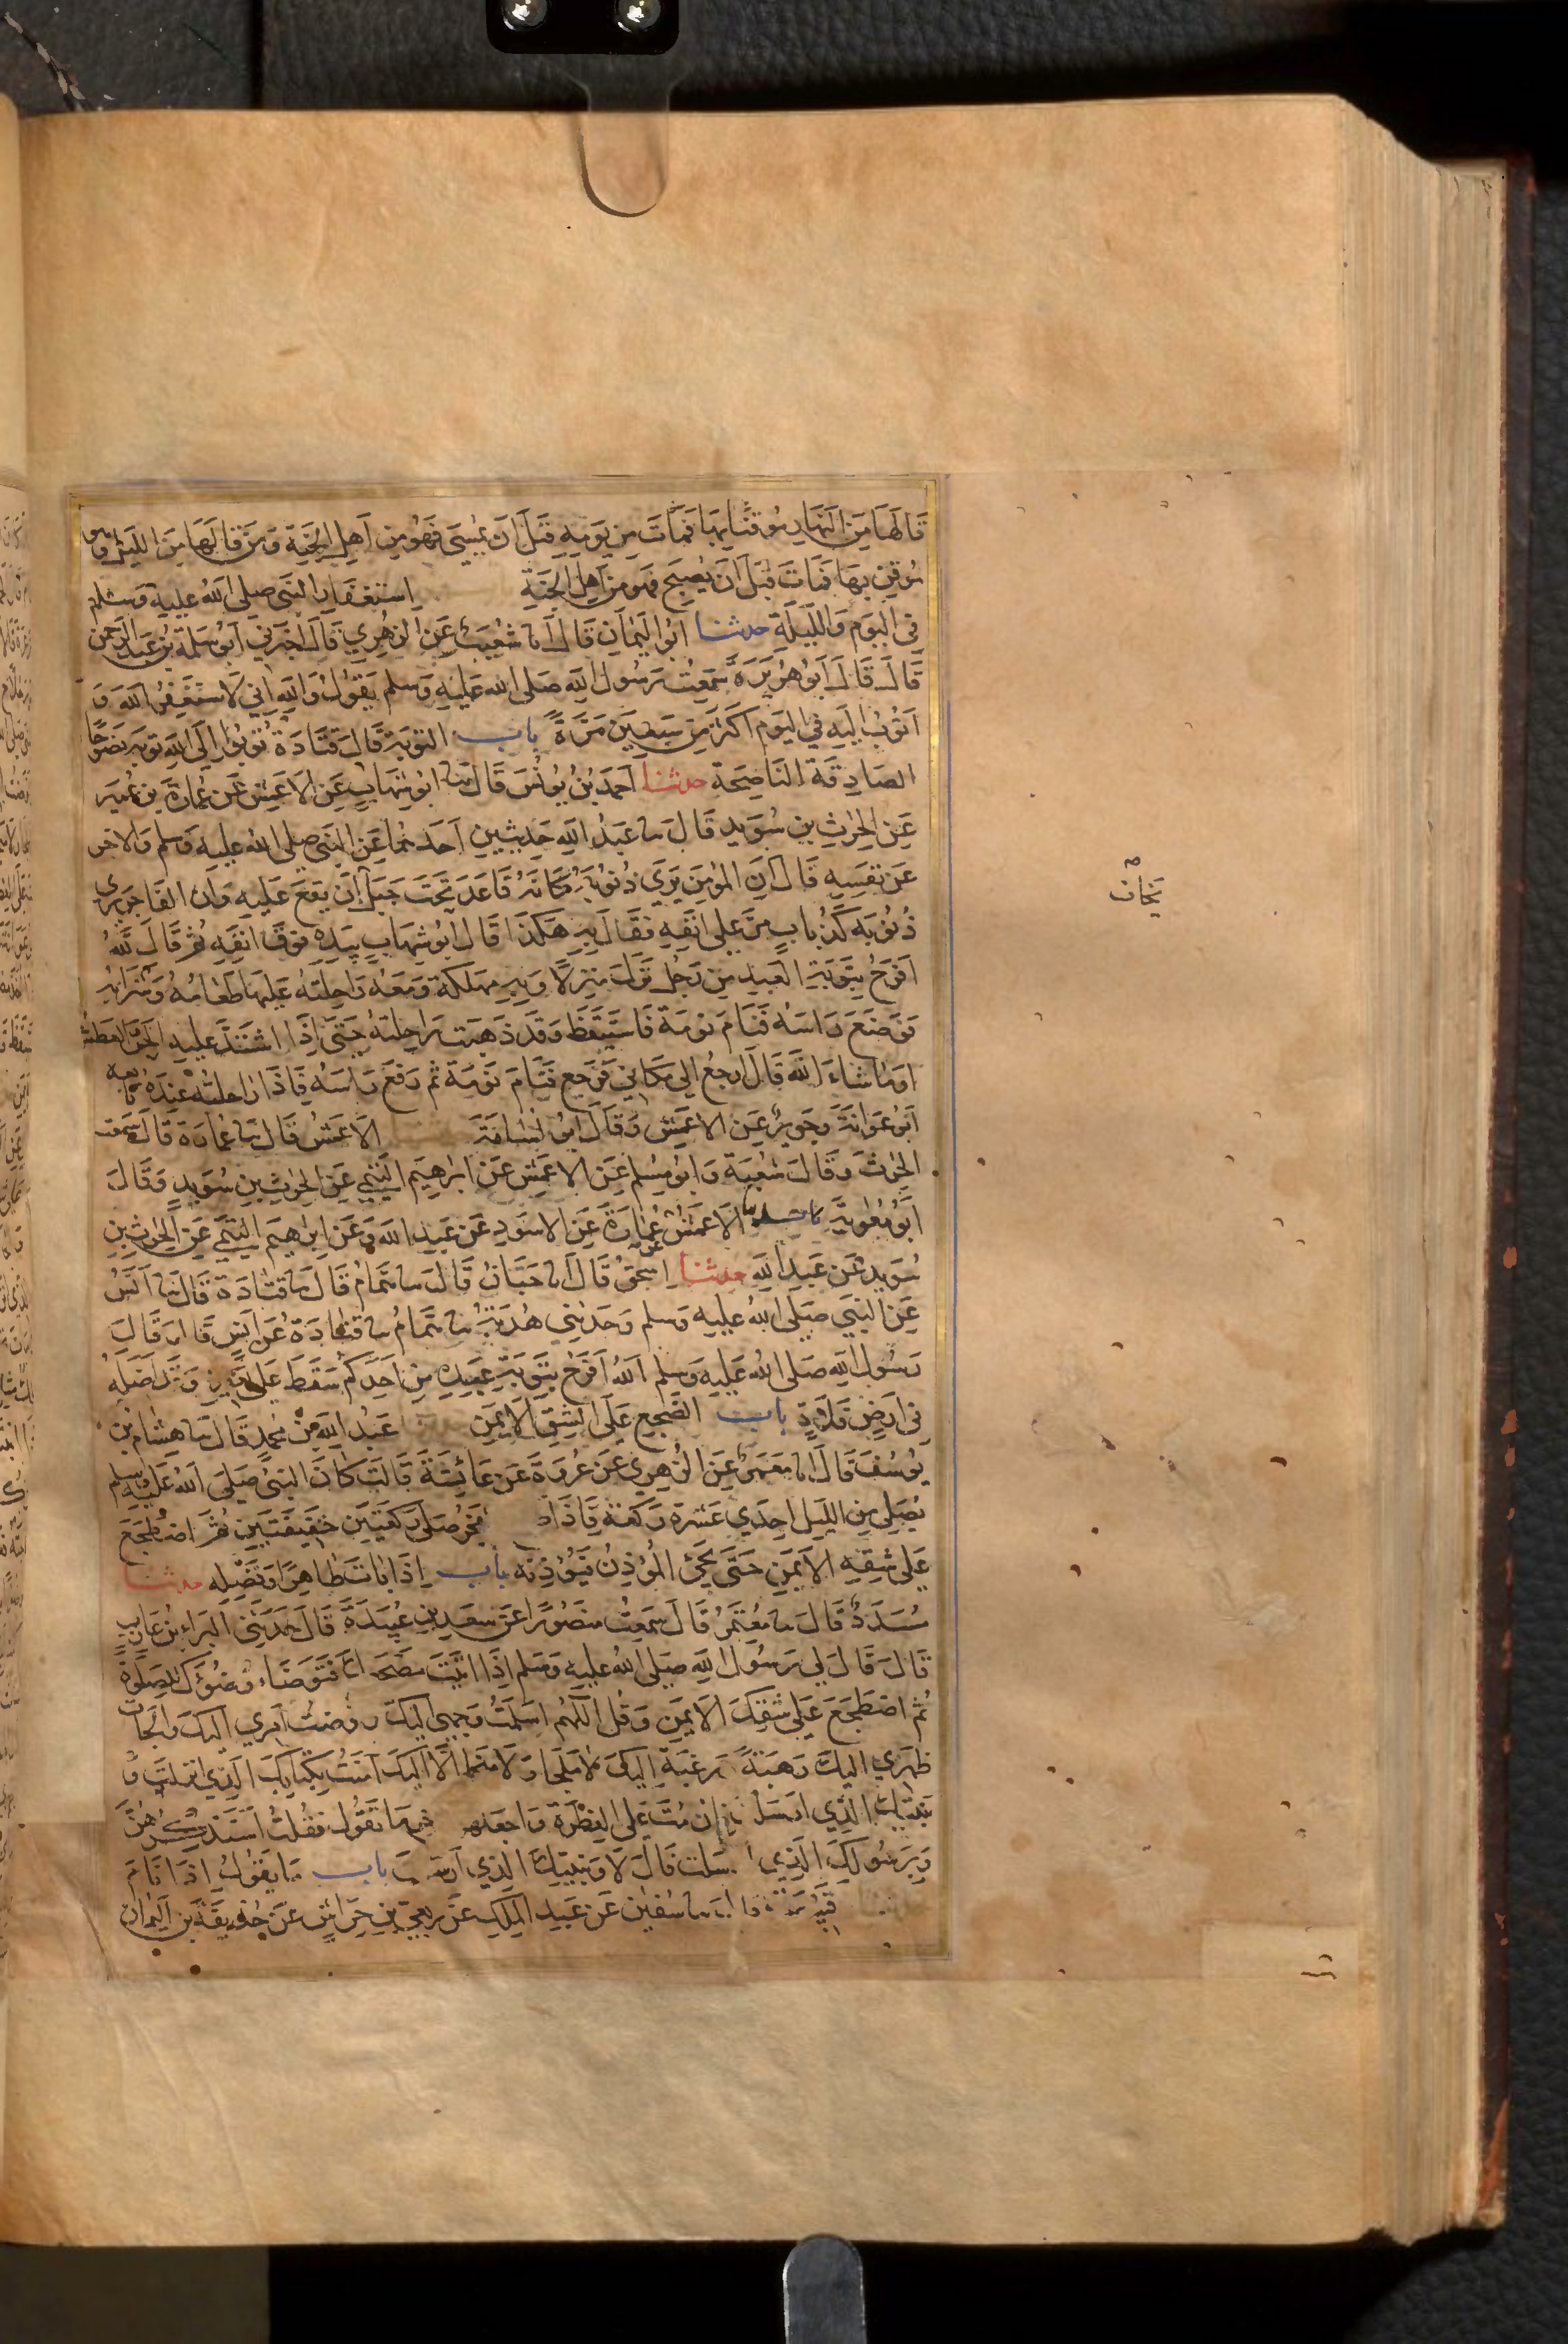 قَالَهَا مِنَ النَهَارِ مُوقنًا بِهَا فَمَاتَ مِن يَومِهِ قَبلَ اَن يُمْسِيَ فَهُوَ مِن اَهلِ الجَنّةِ وَمَن قَالَهَا مِنَ الليلِ وهو
مُوقِن بِهَا فَمَاتَ قبْلَ اَن يُصبِحَ فهو مِن اَهِل الجَنّةِ استغفار النَبي صلى الله عليه وسلم
في اليَوم وَاللَيلَةِ حدثنا ابُو اليمَان قَالَ انا شُعَيبٌ عَنِ الزهرِي قَالَ اخبَرني اَبو سَلمة بن عَبد الرحمن
قَالَ قَالَ اَبو هُرَيرَة سَمعتُ رسول الله صَلى الله عَليه وَسلم يَقوُل وَاللهِ اني لاستَغفِر اللهَ وَ
اتوُبُ اليَهِ في اليَوم اكثر مِن سَبعين مَرَّةً باب التوبَة قَالَ قتَادَة تُوبُوا الَى الله توبة نصوحًا
الصَادِقَة النَاصِحَة حدثنا اَحمَد بنُ يُونُسَ قَالَ ثنا ابو شِهَابٍ عَنِ الاَعمَشِ عَن عُمَارَة بن عُمَير
عَنِ الحرِثِ بنِ سُوَيدٍ قَالَ نا عَبدُ اللهِ حَديثينِ اَحَدهُما عَنِ النَبي صلى الله عليهِ وَسلم وَالاخر
عَن نفسِهِ قَالَ اِن المؤمن يَرَى ذُنُوبَهُ كَانَهُ قَاعِد تَحتَ جَبل اَن يَقعَ عَليهِ وَاِن الفَاجِر يَرَى
ذُنُوبَهُ كَذُبَابٍ مَرَّ عَلى انفِهِ فقَالَ بِهِ هَكذَا قَالَ ابو شِهَابٍ بيَدِهِ فوق انفِه ثم قَالَ للهُ
اَفرَحُ بِتَوبَةِ العَبد مِن رَجُلٍ نزَلَ منزِلًا وَبِهِ مهلكة وَمَعَهُ رَاحِلته عَليهَا طَعَامُهُ وَشَرَابُه
فوَضَعَ رَاسَهُ فنَامَ نومَة فَاستَيقَظَ وَقَد ذهَبت رَاحِلتهُ حَتى اِذَا اشتَدَّ عَليهِ الحر والعَطش
اومَا شاءَ اللهُ قَالَ ارجعُ الى مَكاني فرَجع فنَامَ نَومَة ثم رفَعَ رَاسَهُ فاذَا رَاحلتُه عِندَهُ تابعه
اَبُو عَوَانَةَ وَجَريرٌ عَنِ الاعمَش وَقَالَ ابو اُسَامَةَ الاَعمَش قَالَ نا عُمَارَة قَالَ سَمعت
الحرث وَقَالَ شُعبَة وَابو مُسلِم عَنِ الاعمَش عَن ابرَهِيمَ التَيمي عَن الحرث بنِ سُوَيدٍ وَقَالَ
اَبوُ مُعٰوية نا الاَعمَشُ عن عُمَارَة عَنِ الاَسوَدِ عَن عَبد الله وَعَن ابرٰهِيم التَيمي عَنِ الحرث بن
سُوَيدٍ عَن عَبد اللهِ حدثنا اِسحٰق قَالَ انا حَبَّان قَالَ نا همَّام قَالَ نا قتَادَة قَالَ نا اَنَسٌ
عَنِ النَبي صَلى الله عليه وَسلم وَحَدثني هُدبَةُ نا همَّام نا قتَادَة عَن انَسٍ قَالَ قَالَ
رَسُول الله صَلى الله عَليه وَسلم اَللهُ اَفرَحُ بِتَوبَةِ عَبدِهِ مِن اَحَدِكم سَقَط عَلى بَعيره وَقد اَضَلَّه
في اَرضٍ فَلاةٍ باب الضَجع عَلى الشِق الاَيمَن عَبدُ الله بن محمَّد قَالَ نا هِشام بن
يُوسُفَ قَالَ انا مَعمَر عَنِ الزهرِي عَن عُروَة عَن عَائِشَة قَالَت كانَ النبي صَلى الله عليه وسلم
يُصَلي مِن الليل اِحدي عَشرَة رَكعة فَاِذَا الفجر صَلى رَكعَتَين خَفيفَتين ثم اضطجَعَ
عَلى شِقِهِ الاَيمَن حَتَّى يَجَئ المُؤذِنُ فيُؤذِنَه باب اِذَا بَاتَ طَاهِرًا وَفَضلِه حدثنا
مُسَدَّدٌ قَالَ نا مُعتَمر قَالَ سَمعتُ منصُورًا عَن سَعدِ بنِ عُبَيدَةَ قَالَ حَدثَني البَرَاء بنُ عَازِبٍ
قَالَ قَالَ لي رَسُول الله صَلى الله عليه وَسَلم اِذَا اتيتَ مضجعك فتَوضَأ وُضُوءَك للصَلوةِ
ثُم اضطجِع عَلى شقِكَ الاَيمَن وَقُل اللهُم اسلَمتُ وَجهي اليكَ وَفوضتُ اَمري اليكَ وَالجأت
ظهري اليكَ رَهبَةً وَرغبَة اليكَ لا ملجَا وَلا منجَا الَّا اليكَ آمنتُ بكتابكَ الذِي انزَلتَ وَ
بنَبيكَ الذي ارسَلتَ فان مُتَّ عَلى الفِطرَة وَاجعَلهن آخر مَا تقوُل فقُلتُ اَستَذكرهُنَّ
وَبِرَسُولِكَ الذي ارسَلت قَالَ لَا وَبنَبيكَ الذي اَرسَلتَ باب مَا يَقوُل اِذَا نَامَ
قَبيصَة قال نا سُفيٰن عَن عَبد الملِك عَن رِبعيّ بنِ حِرَاشٍ عَن حُذيفَة بن اليَمان
يُجَان